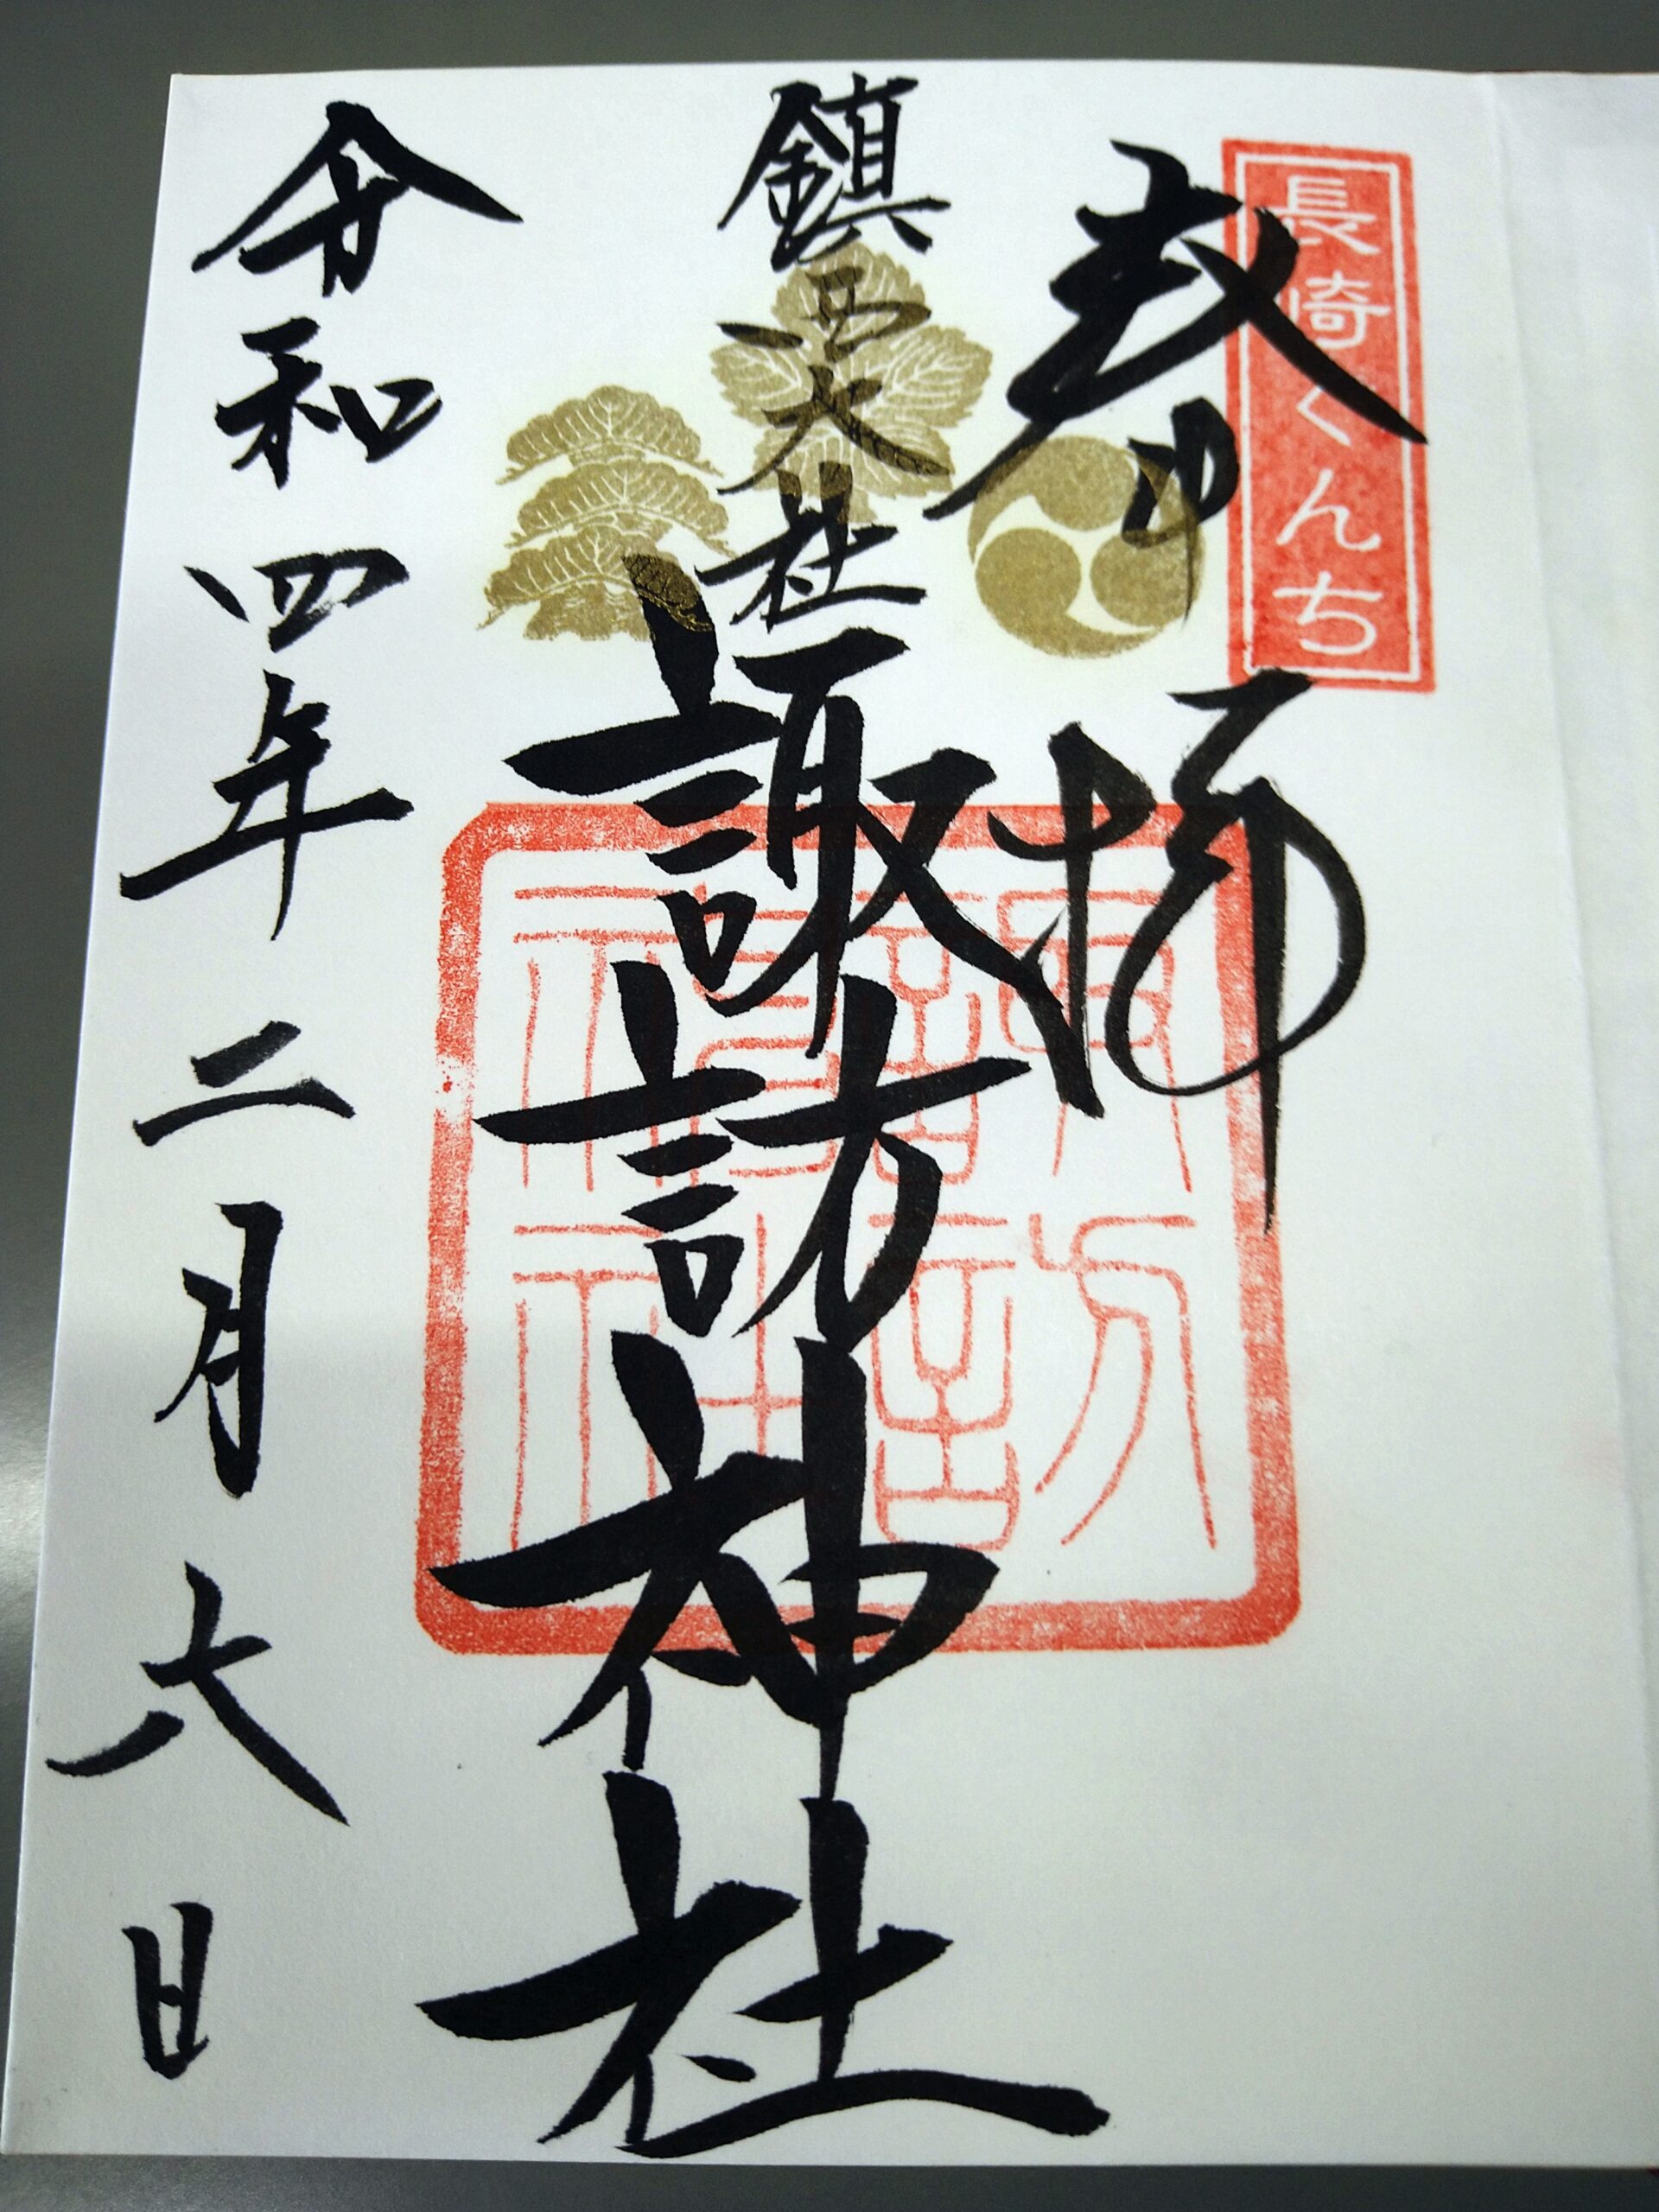 長崎くんち
拝
鎮西大社
諏訪神社
諏訪
神社
令和四年二月六日